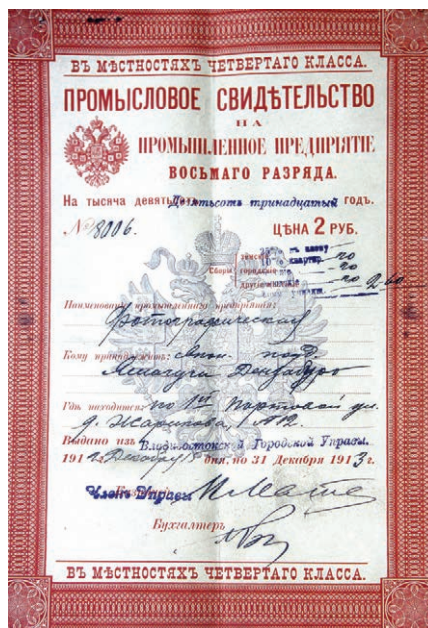 ВЪ МѢСТНОСТЯХЪ ЧЕТВЕРТАГО КЛАССА.
ПРОМЫСЛОВОЕ СВИДѢТЕЛЬСТВО
НА
ПРОМЫШЛЕННОЕ ПРЕДПРІЯТІЕ
ВОСЬМАГО РАЗРЯДА.
На тысяча девятьсотъ тринадцатый годъ.
№ 8006.
ЦѢНА 2 РУБ.
Сборы
земскіе
городскіе
другіе
2 60
Наименованіе промышленнаго предпріятія:
фотографическая
Кому принадлежитъ: япон. подд.
Гдѣ находится: по 1й Портовой ул.
д. Жарикова, №12.
Выдано изъ Владивостокской Городской Управы.
1912 Декабря 18 дня, по 31 Декабря 1913 г.
Членъ Управы
Бухгалтеръ
ВЪ МѢСТНОСТЯХЪ ЧЕТВЕРТАГО КЛАССА.